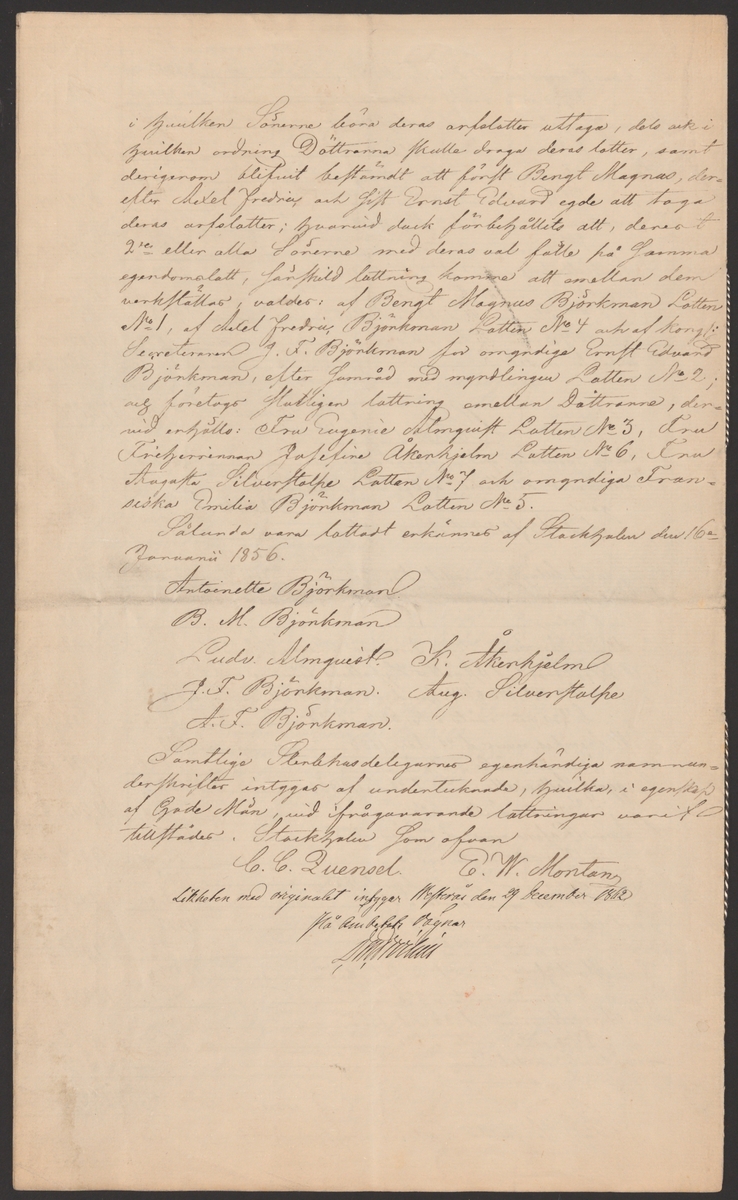 i hvilken Sönerne böra deras arfslotter uttaga, dels ock i
hvilken ordning Döttrarna skulle draga deras lotter, samt
derigenom blifvit bestämdt att först Bengt Magnus, der-
efter Axel Fredric och sist Ernst Edvard egde att taga
deras arfslotter; hvarvid dock förbehållits att, derest
2ne eller alla Sönerne med deras val fälle på samma
egendomslott, särskild lottning komme att emellan dem
verkställas; valdes: af Bengt Magnus Björkman Lotten
No 1, af Axel Fredric Björkman Lotten No 4 och af Kongl:
Secreteraren J. F. Björkman för omyndige Ernst Edvard
Björkman, efter samråd med myndlingen Lotten No 2;
och företogs slutligen lottning emellan Döttrarne, der-
vid erhöllo: Fru Eugenie Almquist Lotten No 3, Fru
Friherrinnan Josefine Åkerhjelm Lotten No 6, Fru
Augusta Silverstolpe Lotten No 7 och omyndiga Fran-
siska Emilia Björkman Lotten No 5.
Sålunda vara lottadt erkännes af Stockholm den 16de
Januarii 1856.
Antoinette Björkman
B. M. Björkman
Ludv. Almquist. K. Åkerhjelm
J. F. Björkman. Aug. Silverstolpe
A. F. Björkman.
Samtlige Sterbhusdelegarnes egenhändiga namnun-
derskrifter intygas af undertecknade, hvilka, i egenskap
af Gode Män, vid ifrågavarande lottningar varit
tillstädes. Stockholm som ofvan
C. C. Quensel. E. W. Montan
Likheten med originalet intygar Westerås den 29 December 1862
På Embetets vägnar